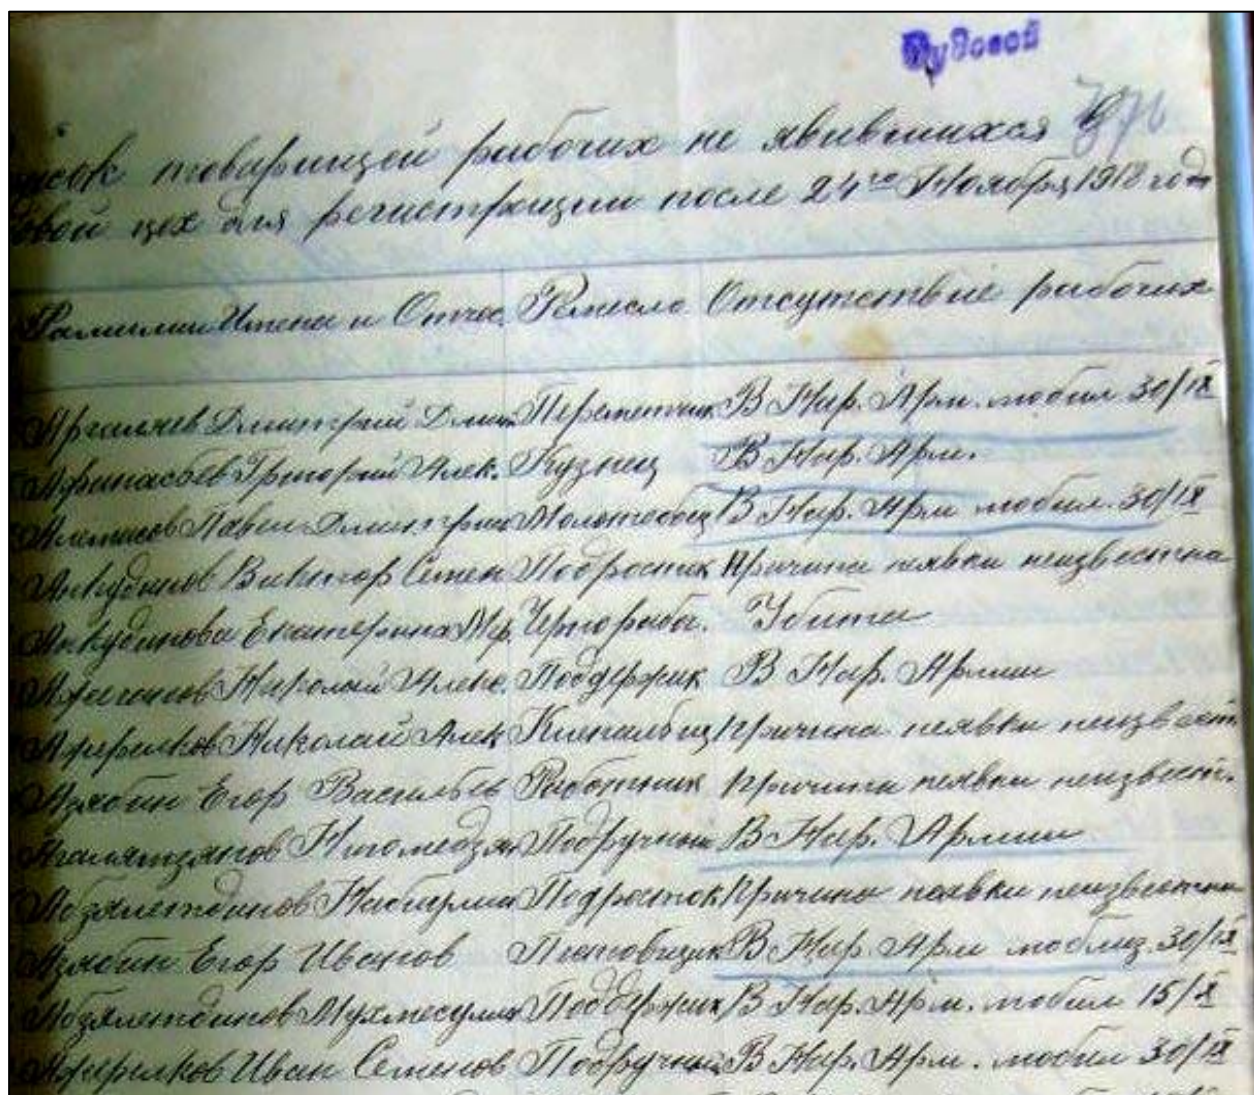 Судовой
376
исок товарищей рабочих не явившихся в
овой цех для регистрации после 24го Ноября 1918 год
Фамилии Имена и Отчес. Ремесло Отсутствие рабочих
Дмитрий Дмит. В Нар. Арм. мобил 30/IX
Афанасьев Григорий Алек. Кузнец В Нар. Арм.
Павел Дмитрие Молотобоец В Нар. Арм мобил. 30/IX
Анкудинов Виктор Семен Подросток Причина неявки неизвестна
Анкудинова Екатерина Чернорабо. Убита
Николай Алекс. Поддержик В Нар. Армии
Николай Алек Клепальщ Причина неявки неизвест.
Азябин Егор Васильев Работник Причина неявки неизвест.
Подручный В Нар. Армии
Абзялетдинов Подросток Причина неявки неизвестна
Азябин Егор Иванов В Нар. Арм мобилиз. 30/IX
Абзялетдинов Поддержик В Нар. Арм. мобил 15/X
Иван Семенов Подручный В Нар. Арм. мобил 30/IX